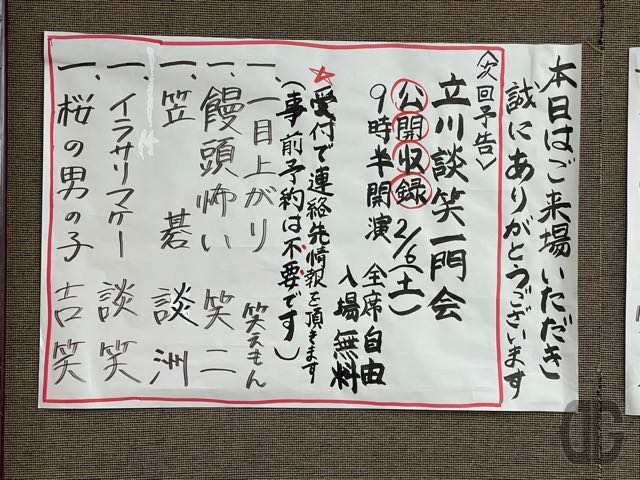 本日はご来場いただき
誠にありがとうございます
〈次回予告〉
立川談笑一門会
公開収録 2/6(土)
9時半開演 全席自由
入場無料
☆受付で連絡先情報を頂きます
(事前予約は不要です)
一、一目上がり 笑えもん
一、饅頭怖い 笑二
一、笠碁 談洲
一、イラサリマケー 談笑
一、桜の男の子 吉笑